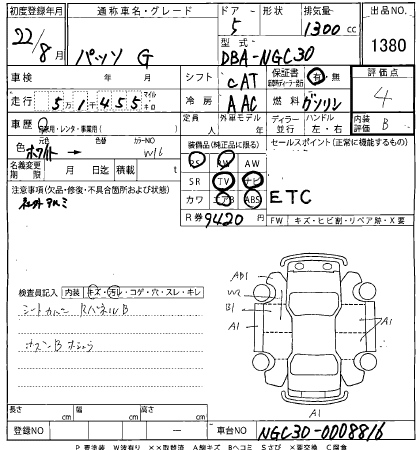 初度登録年月 通称車名・グレード ドア・形状 排気量 出品NO
22/8月 パッソ G 5 1300cc 1380
型式 DBA-NGC30
車検 年 月 シフト CAT 保証書 有・無 評価点
走行 51455 マイル キロ 冷房 AAC 燃料 ガソリン 4
車歴 自家用・レンタ・事業用( ) 定員 人 外車モデル 年 ディーラー 並行 ハンドル 左・右 内装評価 B
色 ホワイト 元色 色替 カラーNO W16
装備品(純正品に限る) セールスポイント(正常に機能するもの)
PS PW AW
名義変更期限 月 日迄 積載 t
SR TV ナビ
注意事項(欠品・修復・不具合箇所および状態)
カワ エアB ABS ETC
R券 9420円 FW キズ・ヒビ割・リペア跡・X要
検査員記入 内装 キズ・汚レ・コゲ・穴・スレ・キレ
AB1
W2
B1
A1
A1
A1
長さ cm 幅 cm 高さ cm
登録NO ― 車台NO NGC30-0008816
P 要塗装 W波有り ××取替済 A線キズ Bヘコミ Sさび ×要交換 C腐食